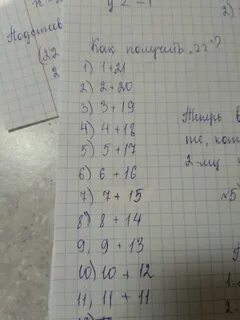 Подстав
(22
2
Как получить "22"?
1) 1+21
2) 2+20
3) 3+19
4) 4+18
5) 5+17
6) 6+16
7) 7+15
8) 8+14
9, 9+13
10) 10+12
11, 11+11
Теперь в
те, кот
2-му
№5